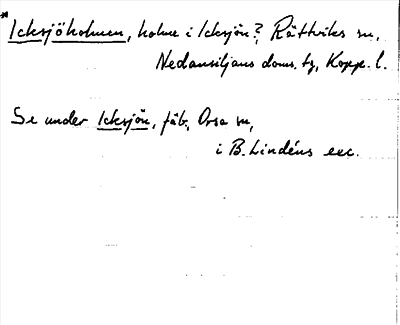 *Icksjöholmen, holme i Icksjön?, Rättviks sn,
Nedansiljans doms. tg, Kopp. l.
Se under Icksjön, fäb., Orsa sn,
i B. Lindéns exc.